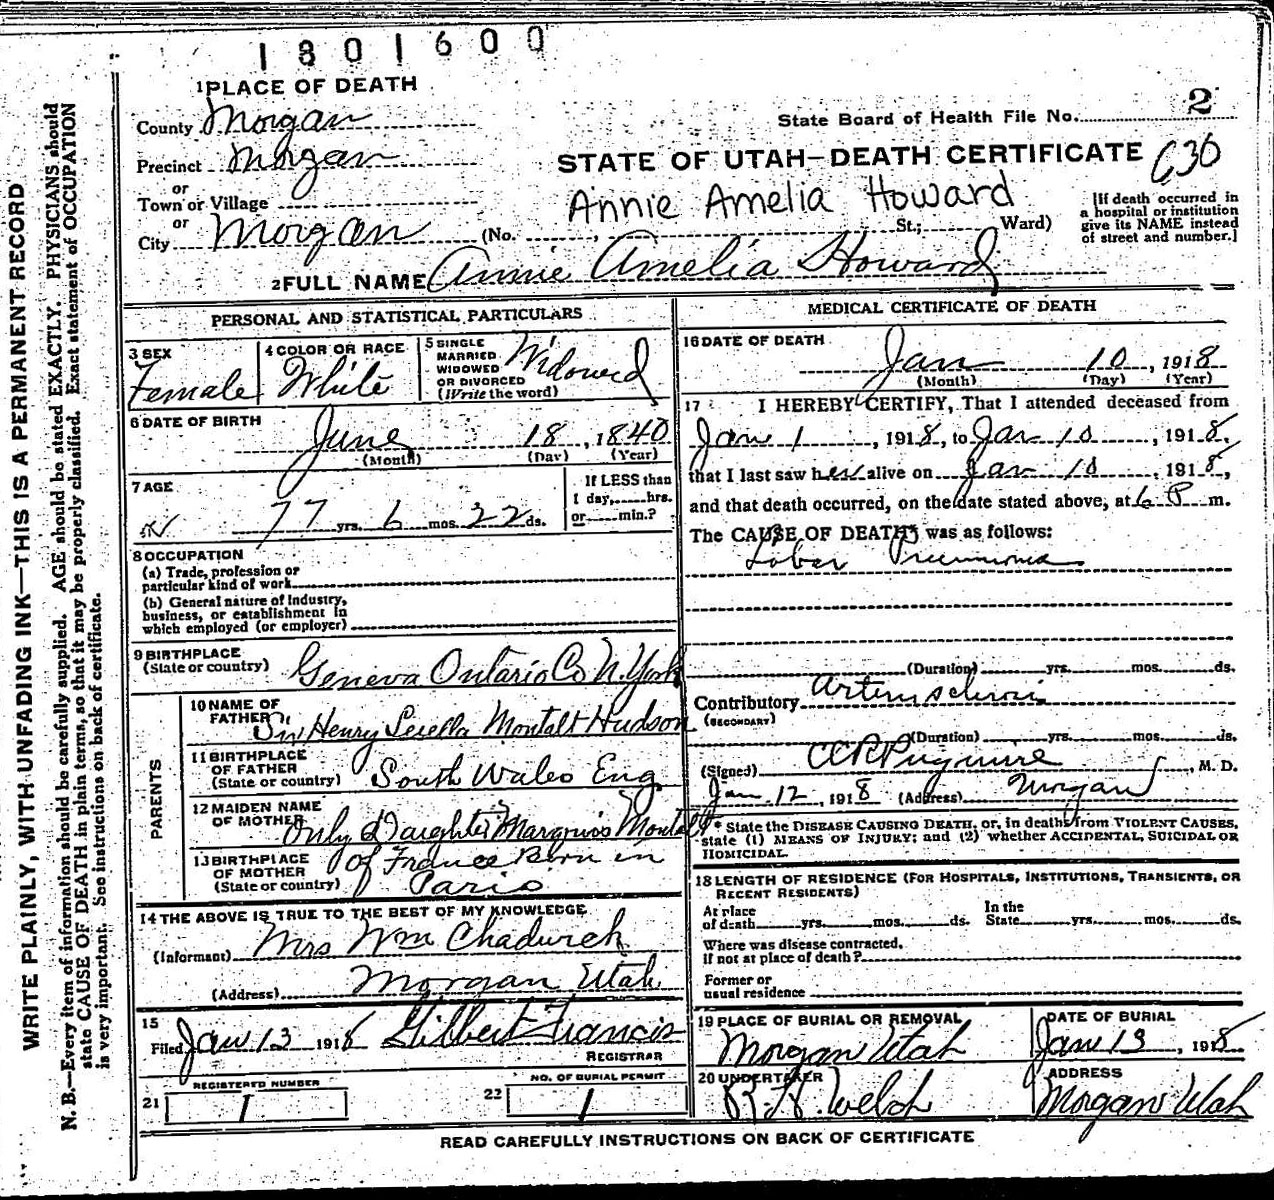 1801600
1 PLACE OF DEATH
County Morgan
State Board of Health File No. 2
Precinct Morgan
STATE OF UTAH—DEATH CERTIFICATE 630
or
Town or Village
Annie Amelia Howard
[If death occurred in
a hospital or institution
give its NAME instead
of street and number.]
or
City Morgan (No. , St.; Ward)
2 FULL NAME Annie Amelia Howard
PERSONAL AND STATISTICAL PARTICULARS
3 SEX
Female
4 COLOR OR RACE
White
5 SINGLE
MARRIED
WIDOWED
OR DIVORCED
(Write the word)
Widowed
6 DATE OF BIRTH
June 18, 1840
(Month) (Day) (Year)
7 AGE
77 yrs. 6 mos. 22 ds.
If LESS than
1 day, hrs.
or min.?
8 OCCUPATION
(a) Trade, profession or
particular kind of work
(b) General nature of industry,
business, or establishment in
which employed (or employer)
9 BIRTHPLACE
(State or country) Geneva Ontario Co N. York
PARENTS
10 NAME OF
FATHER Sir Henry Montalt Hudson
11 BIRTHPLACE
OF FATHER
(State or country) South Wales Eng
12 MAIDEN NAME
OF MOTHER Only Daughter Marquis Montalt
13 BIRTHPLACE
OF MOTHER
(State or country) of France Born in
Paris
14 THE ABOVE IS TRUE TO THE BEST OF MY KNOWLEDGE
(Informant) Mrs Wm Chadwick
(Address) Morgan Utah
15
Filed Jan 13 1918 Gilbert Francis
REGISTRAR
REGISTERED NUMBER
21 1
NO. OF BURIAL PERMIT
22 1
MEDICAL CERTIFICATE OF DEATH
16 DATE OF DEATH
Jan 10, 1918
(Month) (Day) (Year)
17 I HEREBY CERTIFY, That I attended deceased from
Jan 1, 1918, to Jan 10, 1918,
that I last saw her alive on Jan 10, 1918,
and that death occurred, on the date stated above, at 6 P m.
The CAUSE OF DEATH* was as follows:
Lobar Pneumonia
(Duration) yrs. mos. ds.
Contributory
(SECONDARY)
(Duration) yrs. mos. ds.
(Signed) , M. D.
Jan. 12, 1918 (Address) Morgan
* State the DISEASE CAUSING DEATH, or, in deaths from VIOLENT CAUSES,
state (1) MEANS OF INJURY; and (2) whether ACCIDENTAL, SUICIDAL OR
HOMICIDAL.
18 LENGTH OF RESIDENCE (FOR HOSPITALS, INSTITUTIONS, TRANSIENTS, OR
RECENT RESIDENTS)
At place
of death yrs. mos. ds.
In the
State yrs. mos. ds.
Where was disease contracted,
if not at place of death?
Former or
usual residence
19 PLACE OF BURIAL OR REMOVAL
Morgan Utah
DATE OF BURIAL
Jan 13, 1918
20 UNDERTAKER
R. H. Welch
ADDRESS
Morgan Utah
READ CAREFULLY INSTRUCTIONS ON BACK OF CERTIFICATE
WRITE PLAINLY, WITH UNFADING INK—THIS IS A PERMANENT RECORD
N. B.—Every item of information should be carefully supplied. AGE should be stated EXACTLY. PHYSICIANS should
state CAUSE OF DEATH in plain terms, so that it may be properly classified. Exact statement of OCCUPATION
is very important. See instructions on back of certificate.